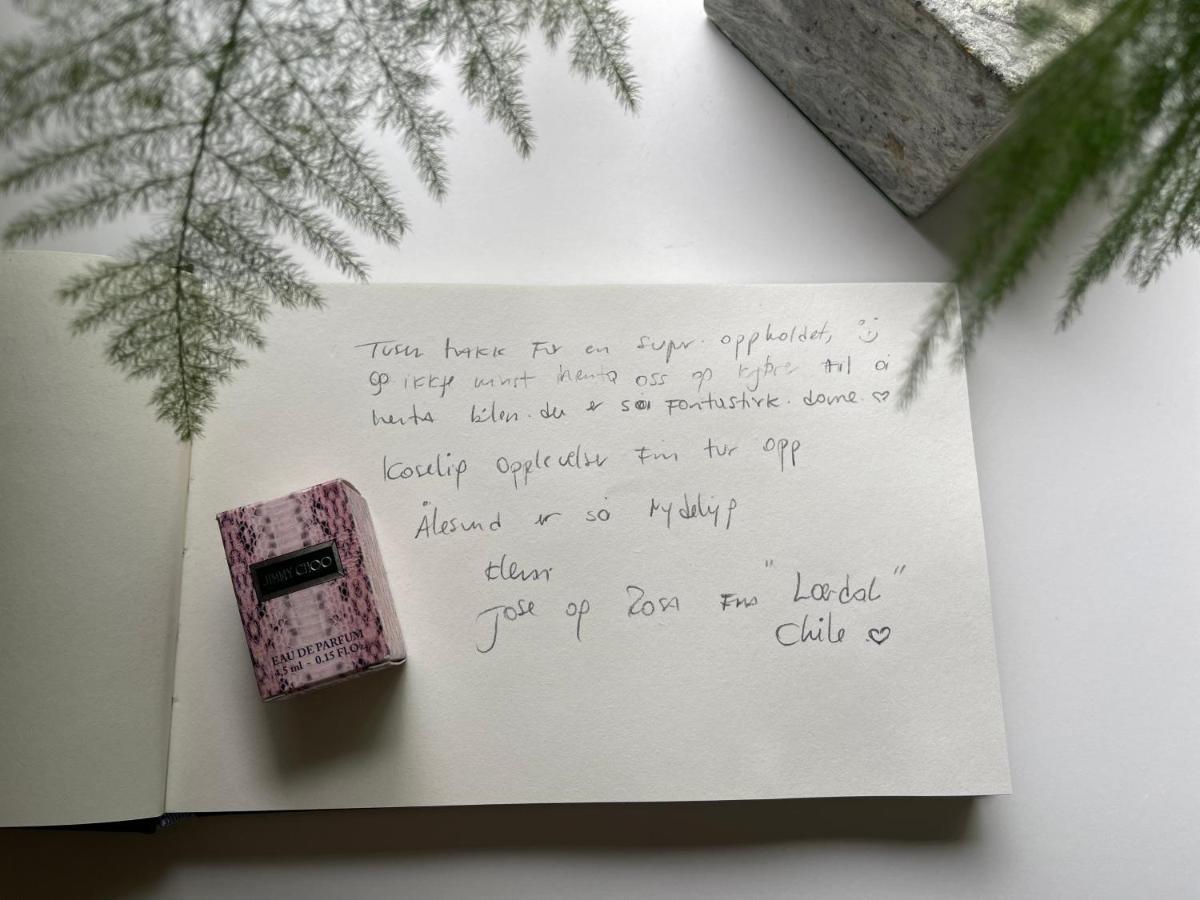 Tusen takk For en supr. oppholdet, :)
og ikkje minst henta oss og kjører til å
henta bilen. du er så Fantastisk. dame. ♡
Koselig opplevelser Fin tur opp
Ålesund er så nydelig
Jose og Rosa Fra "Lærdal"
Chile ♡
JIMMY CHOO
EAU DE PARFUM
4.5 ml - 0.15 FL.O